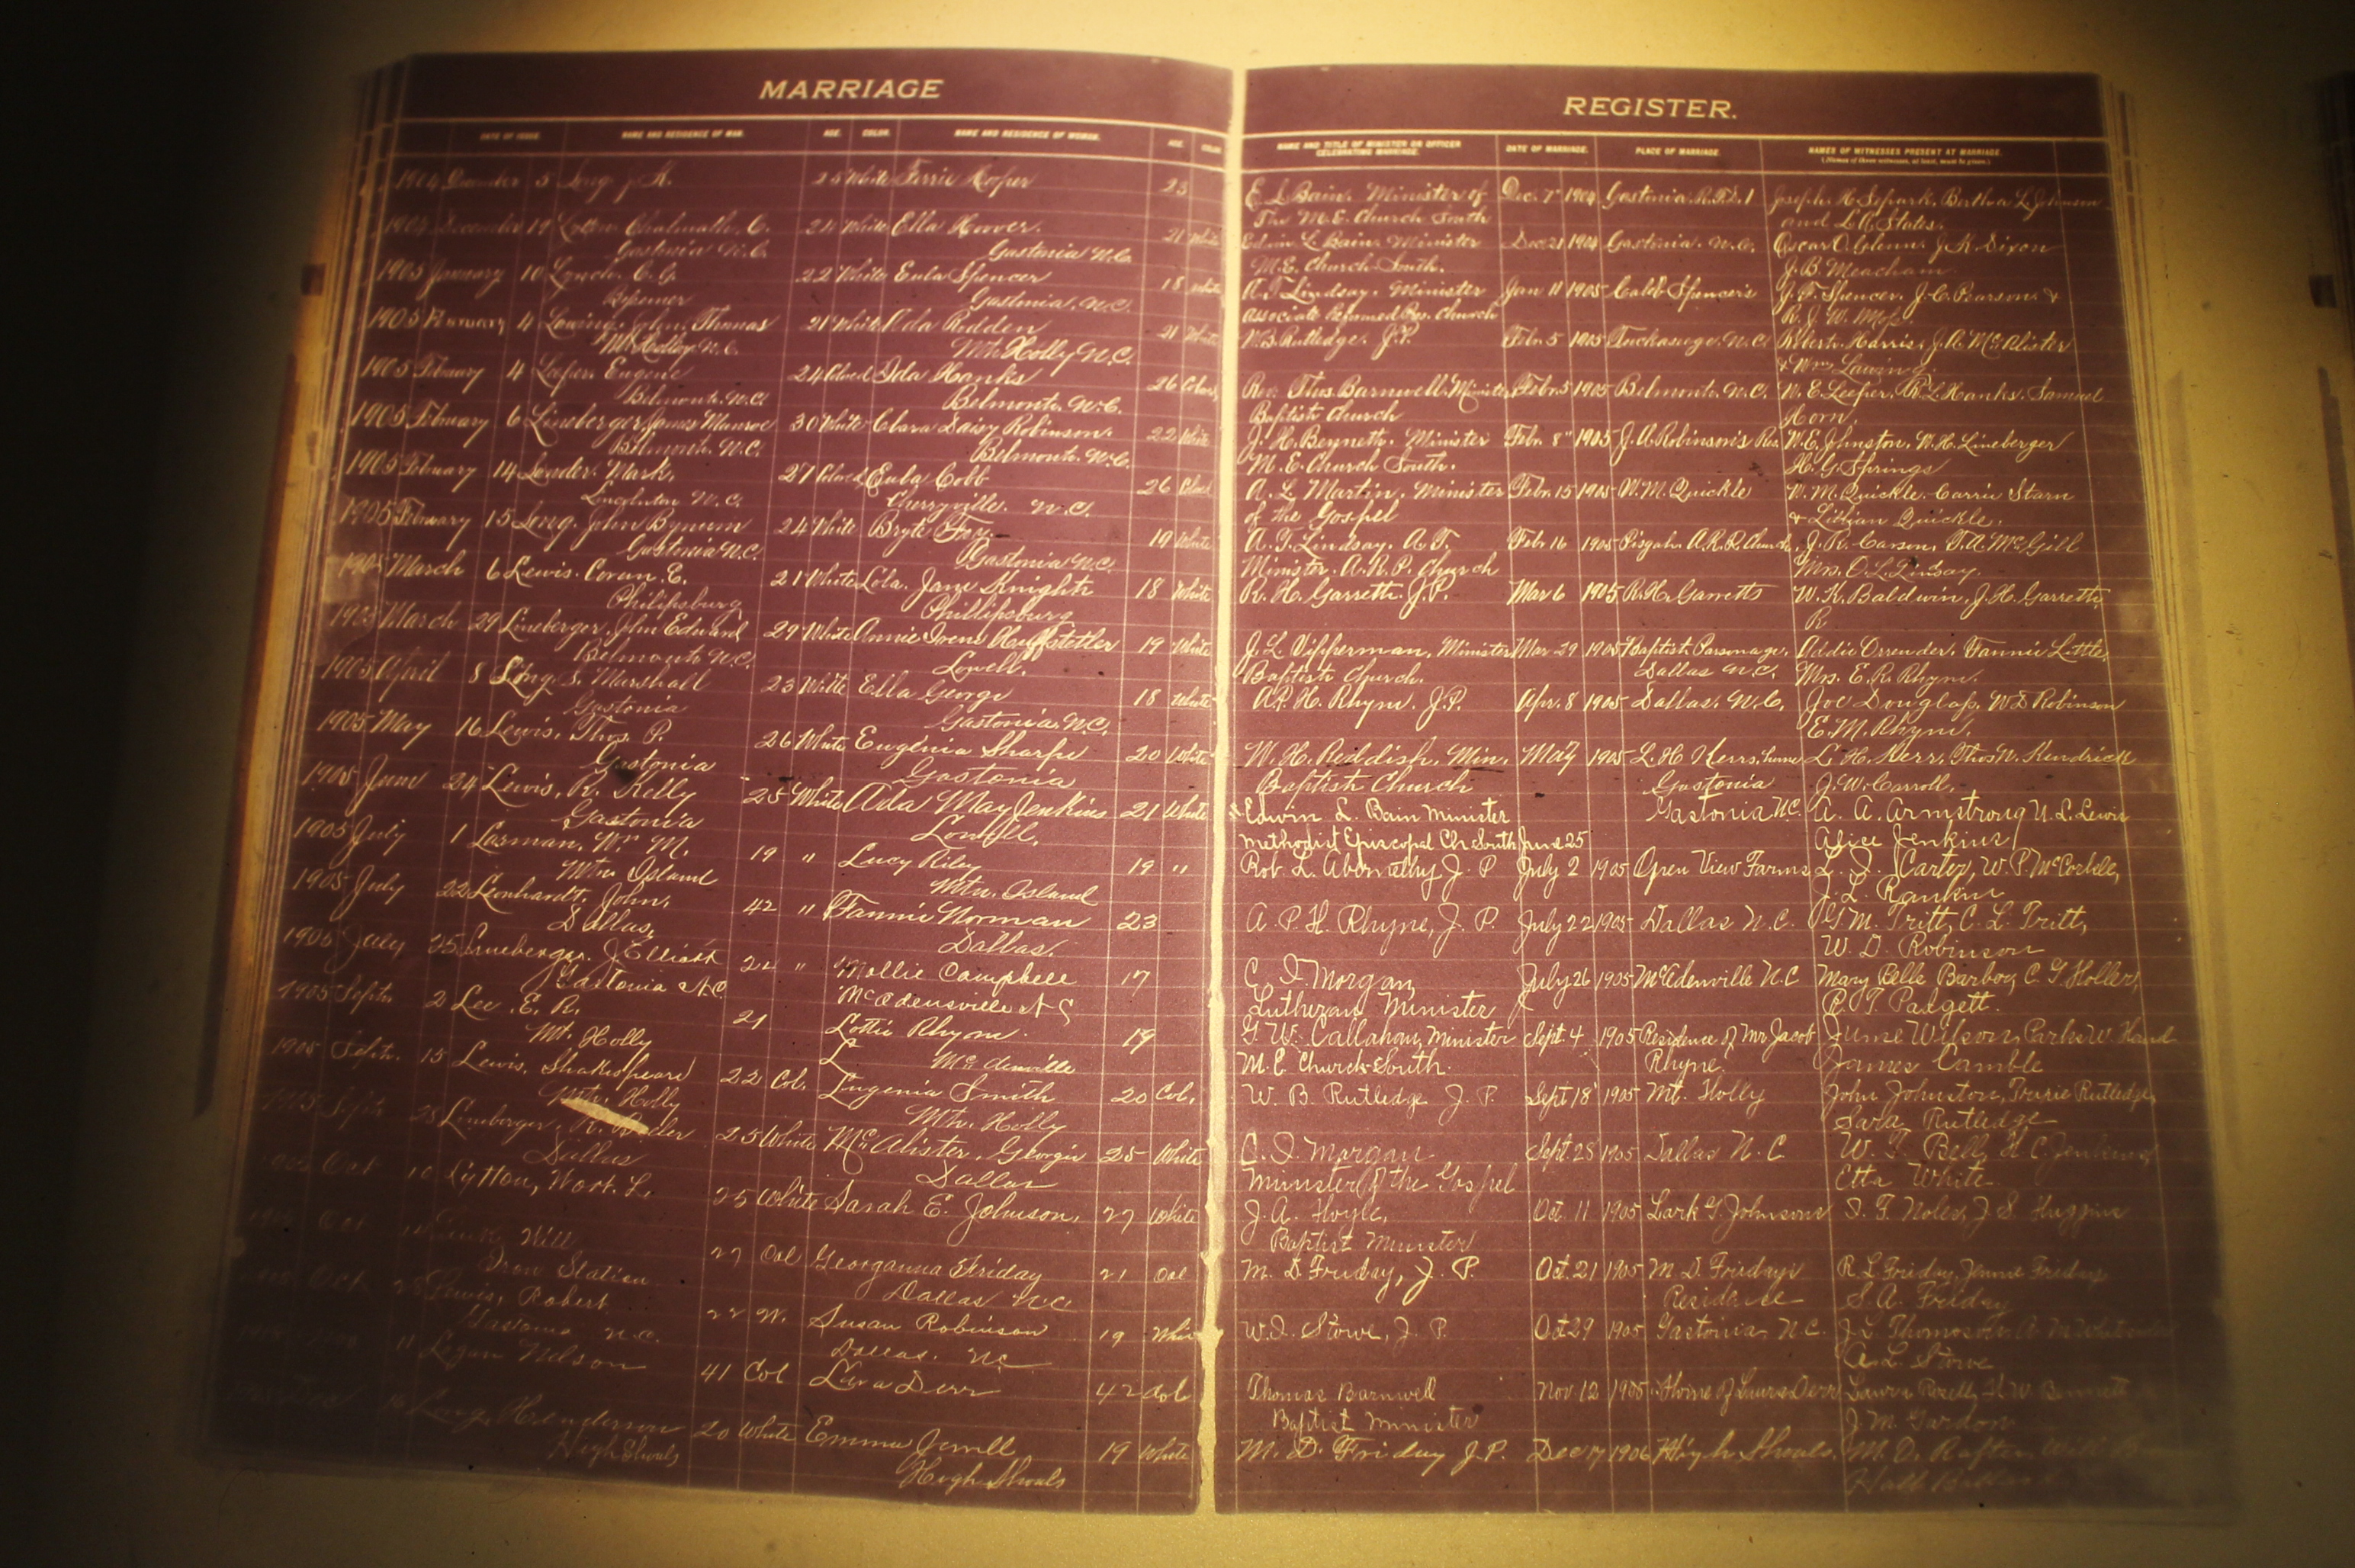 MARRIAGE
REGISTER.
DATE OF ISSUE. NAME AND RESIDENCE OF MAN. AGE. COLOR. NAME AND RESIDENCE OF WOMAN. AGE. COLOR.
NAME AND TITLE OF MINISTER OR OFFICER CELEBRATING MARRIAGE. DATE OF MARRIAGE. PLACE OF MARRIAGE. NAMES OF WITNESSES PRESENT AT MARRIAGE.
(Names of three witnesses, at least, must be given.)
1904 December 5 Long, J. A. 25 White Ferrie Roper 23
1904 December 19 Chalmath. C. 24 White Ella Hoover. 21 White
Gastonia N.C. Gastonia N.C.
1905 January 10 Lynch. C. G. 22 White Eula Spencer 18 White
Bessemer Gastonia, N.C.
1905 February 4 Lawing. John. Thomas 21 White Ada Redden 21 White
Mt. Holly. N.C. Mt. Holly N.C.
1905 February 4 Leeper. Eugene 24 Colored Ida Hanks 26 Colored
Belmont. N.C. Belmont. N.C.
1905 February 6 Lineberger James Munroe 30 White Clara Daisy Robinson. 22 White
Belmont. N.C. Belmont. N.C.
1905 February 14 Lander. Mark. 27 Colored Eula Cobb 26 Colored
Lincolnton N.C. Cherryville. N.C.
1905 February 15 Long. John Bynum 24 White Bryte Foy. 19 White
Gastonia N.C. Gastonia N.C.
1905 March 6 Lewis. Coran. E. 21 White Lola. Jane Knight 18 White
Philipsburg Phillipsburg
1905 March 29 Lineberger. John Edward 29 White Annie Irene Huffstetler 19 White
Belmont N.C. Lowell.
1905 April 8 Long. S. Marshall 23 White Ella George 18 White
Gastonia Gastonia, N.C.
1905 May 16 Lewis, Thos. P. 26 White Eugenia Sharpe 20 White
Gastonia Gastonia
1905 June 24 Lewis, R. Kelly 25 White Ada May Jenkins 21 White
Gastonia Lowell.
1905 July 1 Lasman. Wm M. 19 " Lucy Riley 19 "
Mtn Island Mtn. Island
1905 July 22 Leonhardt. John. 42 " Fannie Norman 23
Dallas, Dallas.
1905 July 25 Lineberger. J. Elliott 24 " Mollie Campbell 17
Gastonia N.C. McAdensville N C
1905 Sept. 2 Lee. E. R. 21 Lottie Rhyne. 19
Mt. Holly L McAdenville
1905 Sept. 15 Lewis, Shakespeare 22 Col. Eugenia Smith 20 Col.
Mt. Holly Mt. Holly
1905 Sept 28 Lineberger, R. 25 White McAlister, Georgia 25 White
Dallas Dallas
Oct 10 Lytton, Wort. L. 25 White Sarah E. Johnson, 27 White
Oct Will 27 Col Georganna Friday 21 Col
Iron Station Dallas N.C.
Oct 28 Lewis, Robert 22 W. Susan Robinson 19 White
Gastonia, N.C. Dallas. N.C.
11 Logan Nelson 41 Col Derr 42 Col
Dec Long, Henderson 20 White Emma 19 White
High Shoals High Shoals
E. L. Bain. Minister of Dec. 7" 1904 Gastonia R.F.D. 1 Joseph. H. Separk, Bertha L. Johnson
The M.E. Church South and
Edwin L. Bain. Minister Dec 21 1904 Gastonia. N.C. Oscar O. Glenn. J. K. Dixon
M.E. Church South. J. B. Meacham
A. T. Lindsay. Minister Jan 11 1905 Caleb Spencer's J. F. Spencer. J. C. Pearson. &
Associate Reformed Pres. Church R. J. W.
W. B. Rutledge. J. P. Febr. 5 1905 Tuckasege. N.C. Robert. Harris, J. A. McAlister
& Wm. Lawing.
Rev. Thos. Barnwell, Minister Febr. 5 1905 Belmont. N.C. W. E. Leeper. R. L. Hanks. Samuel
Baptist Church Horn
J. H. Bennett. Minister Febr. 8" 1905 J. A. Robinson's Res. W. E. Johnston, W. H. Lineberger
M.E. Church South. H. G. Springs
A. L. Martin. Minister Febr. 15 1905 W. M. Quickle W. M. Quickle. Carrie Starn
of the Gospel & Lillian Quickle.
A. T. Lindsay. A. T. Febr. 16 1905 Pisgah A.R.P. Church, J. R. Carson, T. A. McGill
Minister. A.R.P. Church Mrs. O. L. Lindsay.
R. H. Garrett. J. P. Mar 6 1905 R. H. Garretts W. K. Baldwin, J. H. Garrett,
R
J. L. Vipperman, Minister Mar 29 1905 Baptist Parsonage. Addie Orrender. Fannie Little,
Baptist Church. Dallas N.C. Mrs. E. R. Rhyne.
A. P. H. Rhyne. J. P. Apr. 8 1905 Dallas. N.C. Joe Douglass, W D Robinson
E. M. Rhyne.
W. H. Reddish, Min. May 1905 L. H. Kerrs, home L. H. Kerr. Thos. N. Kendrick
Baptist Church Gastonia J. W. Carroll.
Edwin L. Bain Minister Gastonia N.C. A. A. Armstrong N. L. Lewis
Methodist Episcopal Ch. South June 25 Alice Jenkins
Rob. L. Abernethy J. P July 2 1905 Open View Farms L. J. Carter, W. P. McCorkle,
J. L. Rankin
A. P. H. Rhyne, J. P. July 22 1905 Dallas N. C. G. M. Tritt, C. L. Tritt,
W. D. Robinson
C. I. Morgan, July 26 1905 McAdenville N.C Mary Belle Barboy, C. G. Holler,
Lutheran Minister R. T. Padgett.
G. W. Callahan, Minister Sept. 4 1905 Residence of Mr Jacob June Wilson, Parks W. Hand
M.E. Church South. Rhyne James Camble
W. B. Rutledge J. P. Sept 18 1905 Mt. Holly John Johnston, Rutledge,
Sara Rutledge
C. I. Morgan Sept. 28 1905 Dallas N.C W. T. Bell, H. C. Jenkins,
Minister of the Gospel Etta White
J. A. Hoyle, Oct. 11 1905 Lark G. Johnsons I. F. Noles, J. S. Huggins
Baptist Minister
M. D. Friday, J. P. Oct. 21 1905 M. D. Friday's R L Friday, Jennie Friday
Residence S. A. Friday
W. I. Stowe, J. P. Oct 29 1905 Gastonia N.C. J. L. Thomason
A. L. Stowe
Thomas Barnwell Nov 12 1905 Home of Laura Derr Laura
Baptist Minister J. M. Gordon
M. D. Friday J.P. Dec 17 1906 High Shoals. M. D.